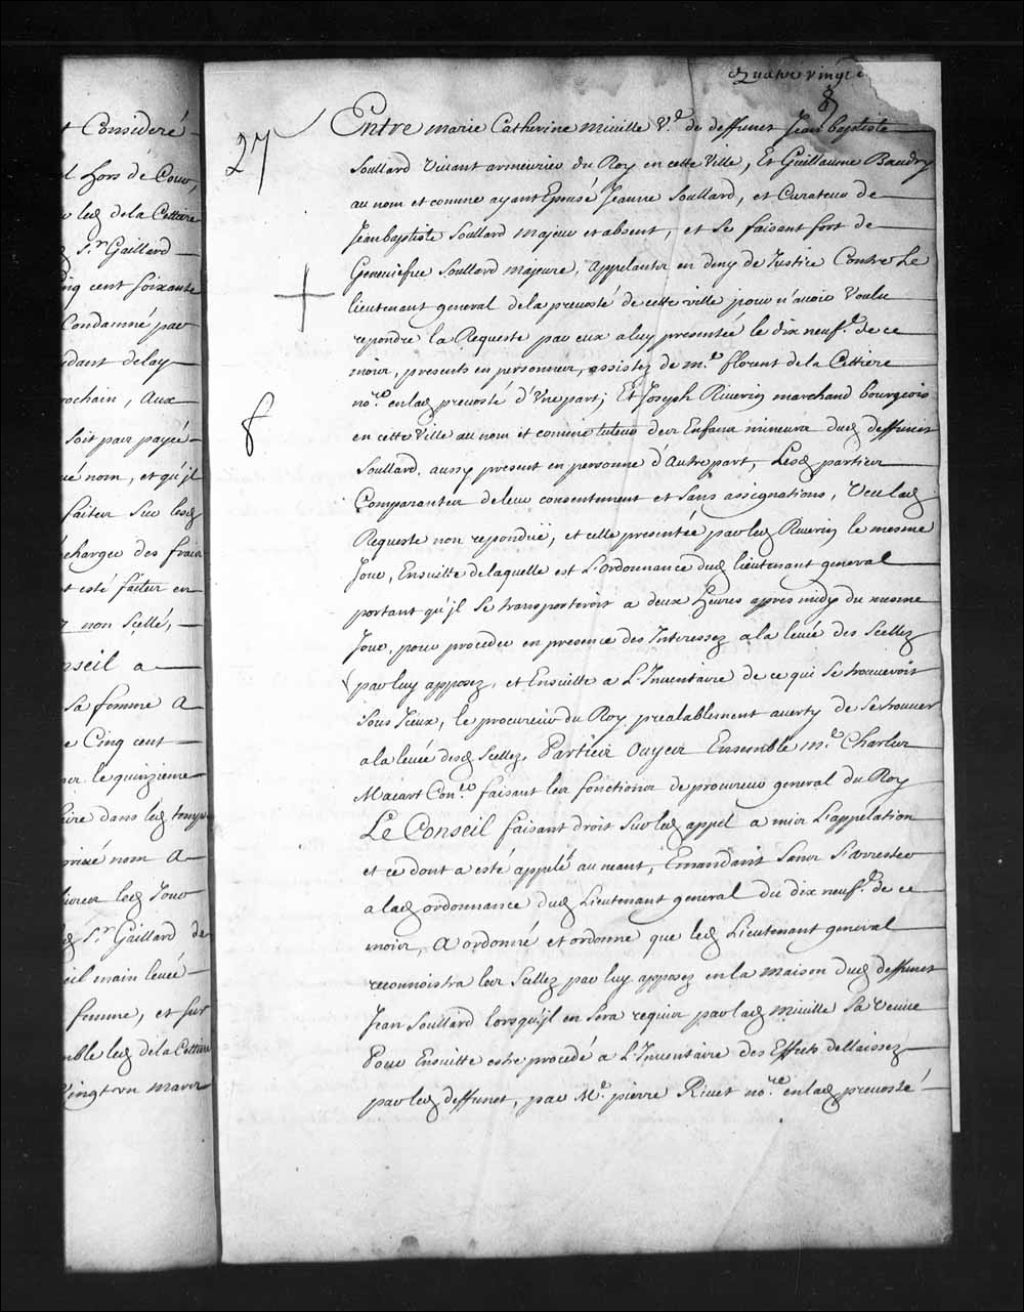 t Consideré
l hors de Cour,
led dela Cettiere
Sr. Gaillard
nq cent soixante
Condamné par
dant delay
ochain, Aux
soit par payé
né nom, et qu'jl
faites sur lesd
chargée des frais
t esté faites en
non scellé,
nseil a
sa femme A
e Cinq cent
le quinzieme
ire dans led temps
nom A
lesd Jour
Sr. Gaillard de
main levée
femme, et sur
mble led dela Cettiere
vingt trois mars
quatre vingt
8
27
8
Entre marie Catherine Miville Ve. de deffunct Jean baptiste
Soullard vivant armeurier du Roy en cette Ville, Et Guillaume Baudry
au nom et comme ayant Epousé Jeanne Soullard, et Curateur de
Jean baptiste Soullard majeur et absent, et se faisant fort de
Geneviefve Soullard majeure, appelantes en deny de Justice Contre Le
lieutenant general dela prevosté de cette ville pour n'avoir Voulu
repondre la Requeste par eux a luy presentée le dix neufe. de ce
mois, presents en personnes, assistez de me. florent dela Cettiere
nore. en lad prevosté d'Vne part; Et Joseph Riverin marchand bourgeois
en cette Ville au nom et comme tuteur des Enfans mineurs dud deffunct
Soullard, aussy present en personne d'Autre part, Lesd parties
Comparantes de leur consentement et sans assignations, Veu lad
Requeste non repondüe, et celle presentée par led Riverin le mesme
Jour, Ensuitte de laquelle est L'ordonnance dud lieutenant general
portant qu'jl se transporteroit a deux heures apres midy du mesme
Jour, pour proceder en presence des Interessez a la levée des scellez
par luy apposez, et Ensuitte a L'Inventaire de ce qui se trouveroit
sous Iceux, le procureur du Roy prealablement averty de se trouver
a la levée desd scellez. Parties Ouyes Ensemble me. Charles
Macart Coner. faisant les fonctions de procureur general du Roy
Le Conseil faisant droit sur led appel a mis L'appelation
et ce dont a esté appelé au neant, Emandant sans s'arrester
a lad ordonnance dud Lieutenant general du dix neufe. de ce
mois, A ordonné et ordonne que led Lieutenant general
reconnoistra les scellez par luy apposez en la maison dud deffunct
Jean Soullard lorsqu'jl en sera requis par lad Miville sa veuve
Pour Ensuitte estre procedé a L'Inventaire des Effects dellaissez
par led deffunct, par Me. pierre Rivet nore. en lad prevosté